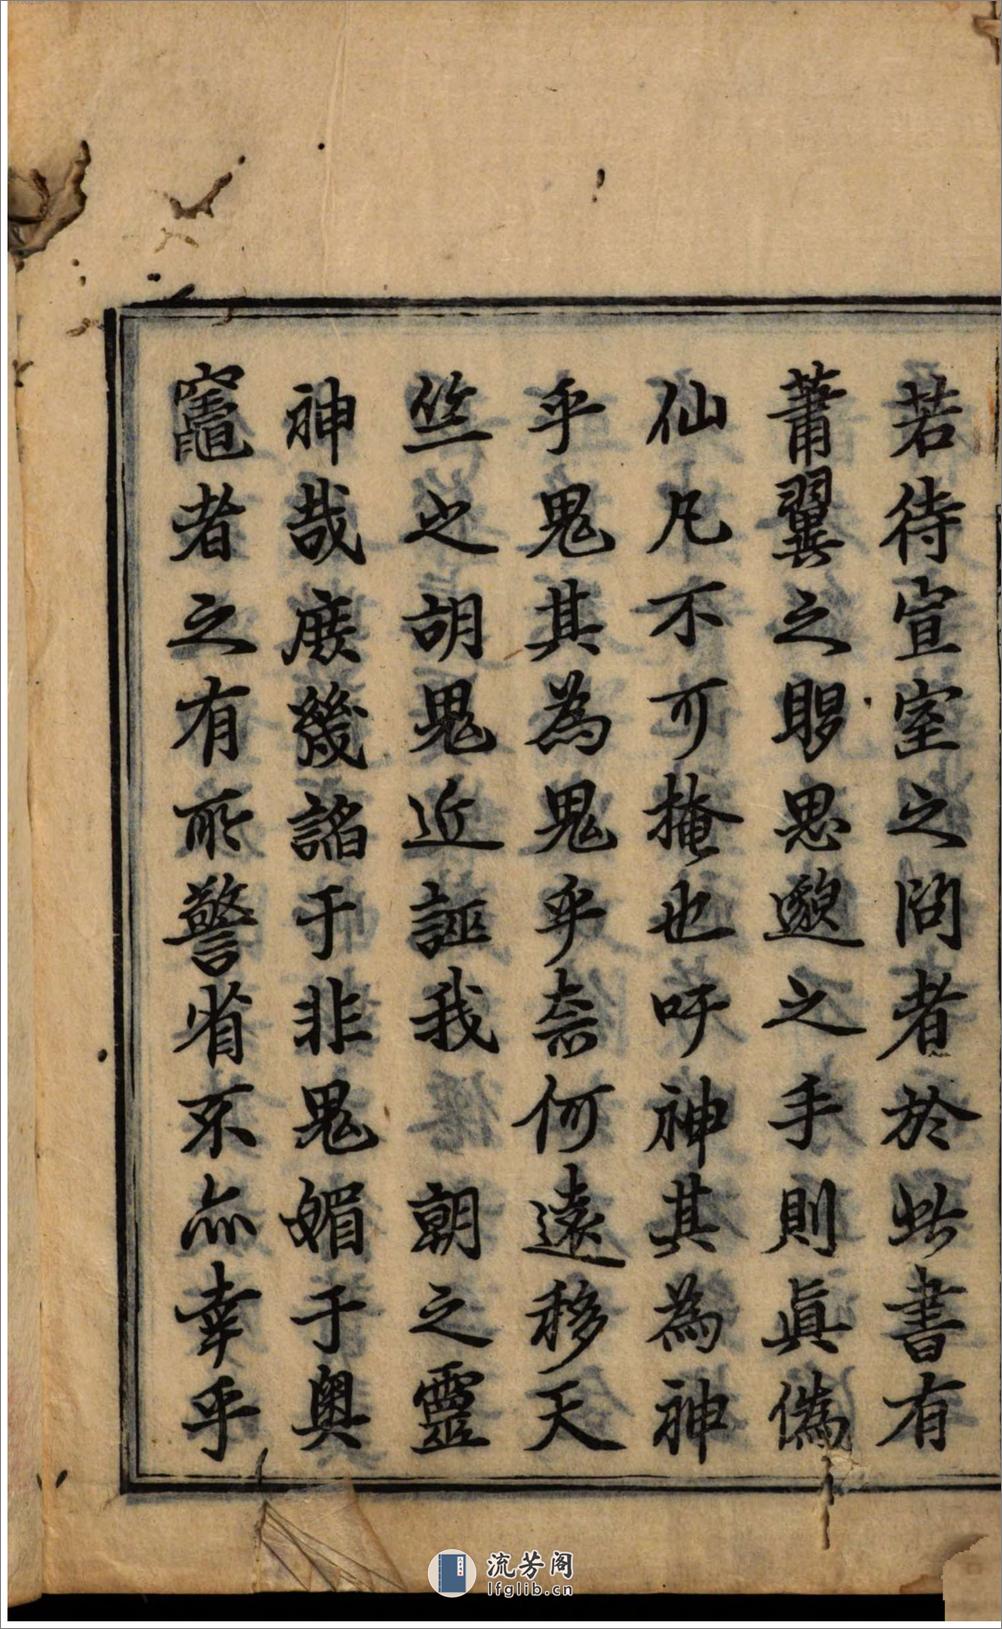 若待宣室之問者於此書有
蕭翼之賜思邈之手則眞偽
仙凡不可掩也吁神其為神
乎鬼其為鬼乎奈何遠移天
竺之胡鬼近誣我　朝之靈
神哉庶幾諂于非鬼媚于奥
竈者之有所警省不亦幸乎
流芳阁
lfglib.cn